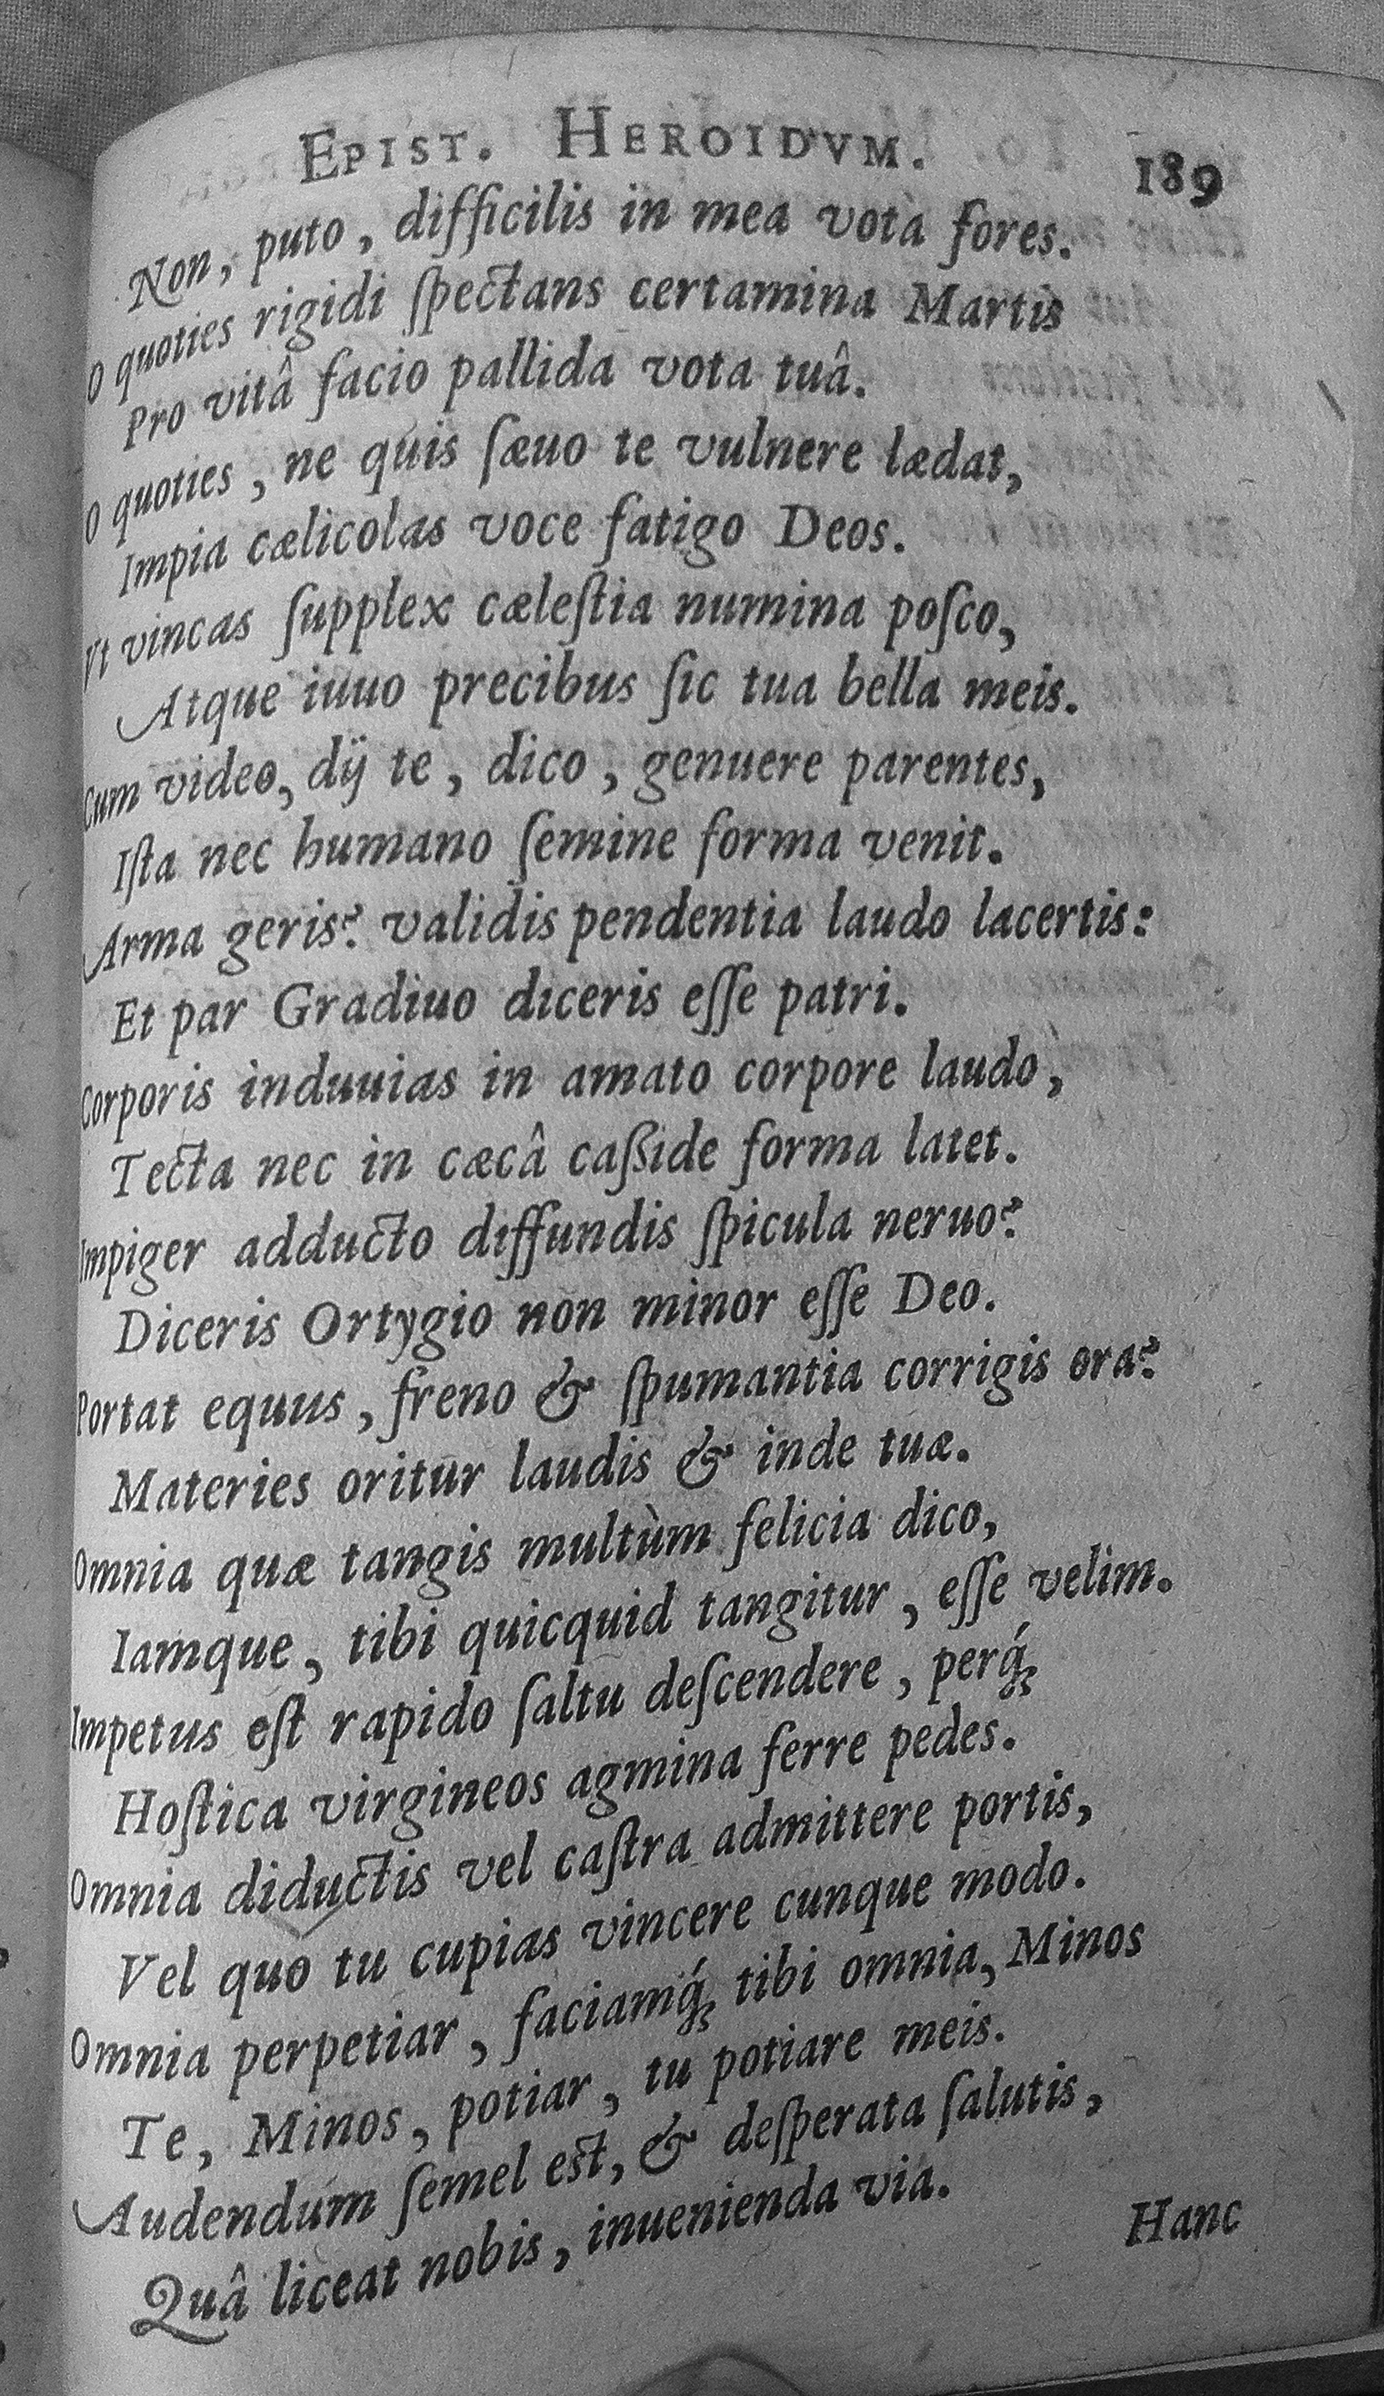 EPIST. HEROIDVM. 189
Non, puto, difficilis in mea vota fores.
O quoties rigidi ſpectans certamina Martis
Pro vitâ facio pallida vota tuâ.
O quoties, ne quis ſæuo te vulnere lædat,
Impia cælicolas voce fatigo Deos.
Vt vincas ſupplex cæleſtia numina poſco,
Atque iuuo precibus ſic tua bella meis.
Cum video, dÿ te, dico, genuere parentes,
Iſta nec humano ſemine forma venit.
Arma geris? validis pendentia laudo lacertis:
Et par Gradiuo diceris eſſe patri.
Corporis induuias in amato corpore laudo,
Tecta nec in cæcâ caßide forma latet.
Impiger adducto diffundis ſpicula neruo?
Diceris Ortygio non minor eſſe Deo.
Portat equus, freno & ſpumantia corrigis ora?
Materies oritur laudis & inde tuæ.
Omnia quæ tangis multùm felicia dico,
Iamque, tibi quicquid tangitur, eſſe velim.
Impetus eſt rapido ſaltu deſcendere, perq́;
Hoſtica virgineos agmina ferre pedes.
Omnia diductis vel caſtra admittere portis,
Vel quo tu cupias vincere cunque modo.
Omnia perpetiar, faciamq́; tibi omnia, Minos
Te, Minos, potiar, tu potiare meis.
Audendum ſemel eſt, & deſperata ſalutis,
Quâ liceat nobis, inuenienda via.
Hanc